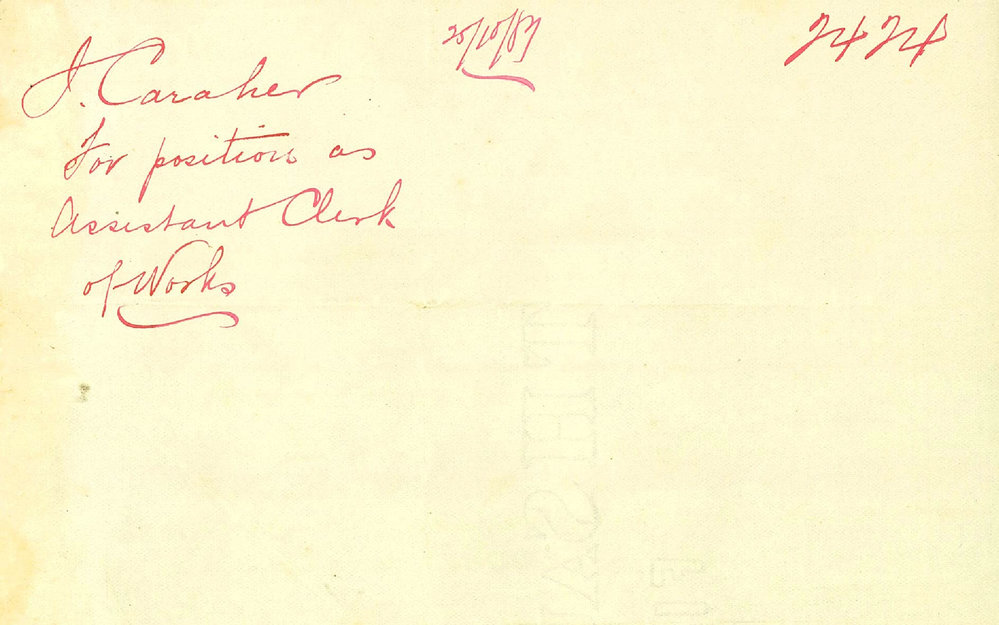 J. Caraher
For position as
Assistant Clerk
of Works
25/10/87
7474